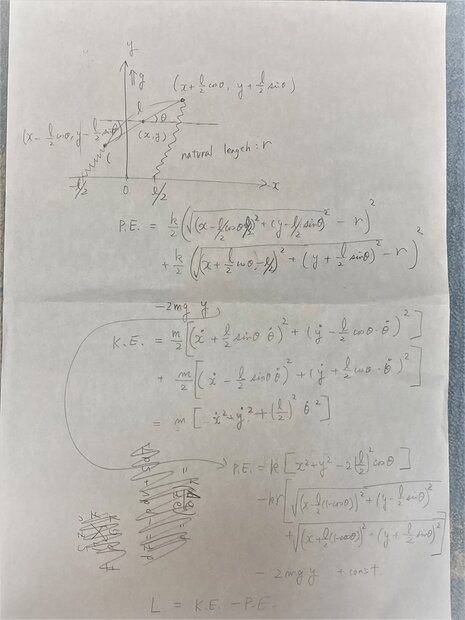 y
⇑ g
(x + l/2 cosθ, y + l/2 sinθ)
l
θ
(x - l/2 cosθ, y - l/2 sinθ)
(x, y)
natural length : r
-l/2 0 l/2 x
P.E. = k/2 (√((x - l/2 cosθ + l/2)² + (y - l/2 sinθ)²) - r)²
+ k/2 (√((x + l/2 cosθ - l/2)² + (y + l/2 sinθ)²) - r)²
- 2mg y
K.E. = m/2 [(ẋ + l/2 sinθ θ̇)² + (ẏ - l/2 cosθ · θ̇)²]
+ m/2 [(ẋ - l/2 sinθ θ̇)² + (ẏ + l/2 cosθ · θ̇)²]
= m [ẋ² + ẏ² + (l/2)² θ̇²]
P.E. = k [x² + y² - 2(l/2)² cosθ]
- kr [√((x + l/2(1-cosθ))² + (y - l/2 sinθ)²)
+ √((x - l/2(1-cosθ))² + (y + l/2 sinθ)²)]
- 2mg y + const
L = K.E. - P.E.